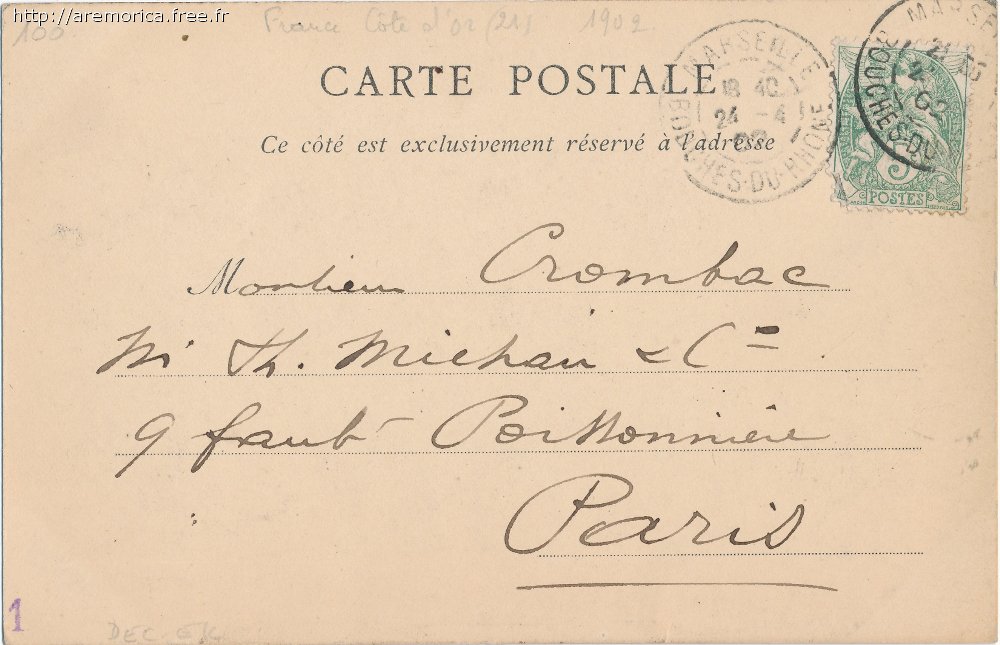 http://aremorica.free.fr
100
France Côte d'Or (21) 1902
CARTE POSTALE
Ce côté est exclusivement réservé à l'adresse
MARSEILLE
18 40
24 -4
02
BOUCHES-DU-RHONE
MARSE
BOUCHES-DU
5
POSTES
Monsieur Crombac
Th. Michau & Cie
9 faubg Poissonnière
Paris
1
DEC